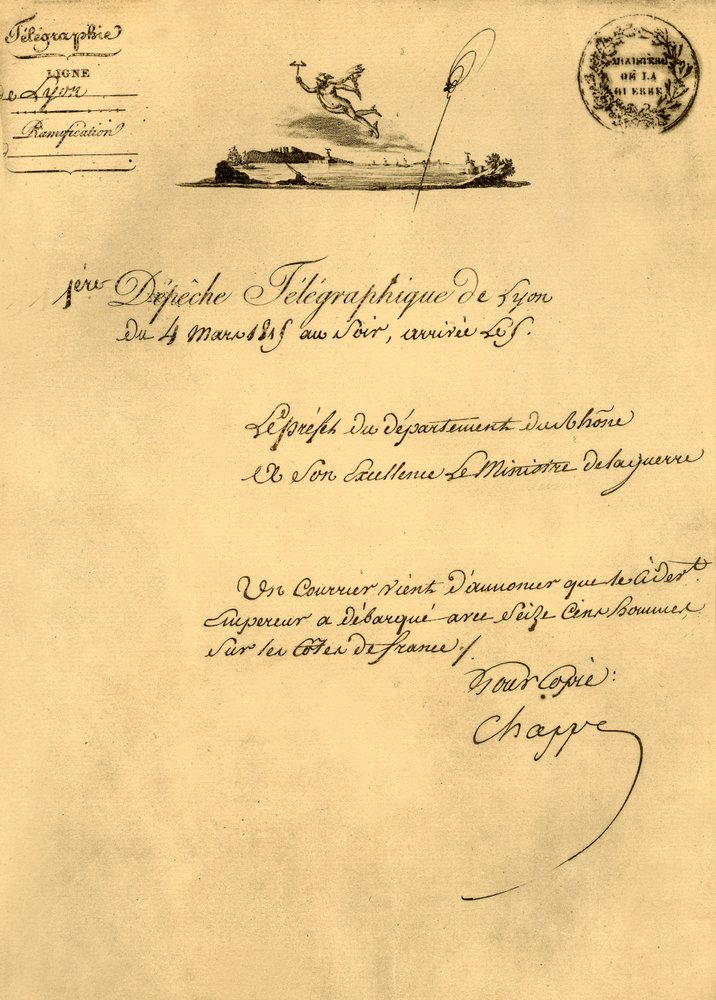 Télégraphie
LIGNE
de Lyon
Ramification
MINISTERE
DE LA
GUERRE
1ère Dépêche Télégraphique de Lyon
du 4 Mars 1815 au soir, arrivée le 5.
Le préfet du département du Rhône
A Son Excellence Le Ministre de la guerre
Un Courrier vient d'annoncer que le cider.t
Empereur a débarqué avec Seize Cens hommes,
sur les Côtes de france ./.
Pour Copie:
Chappe